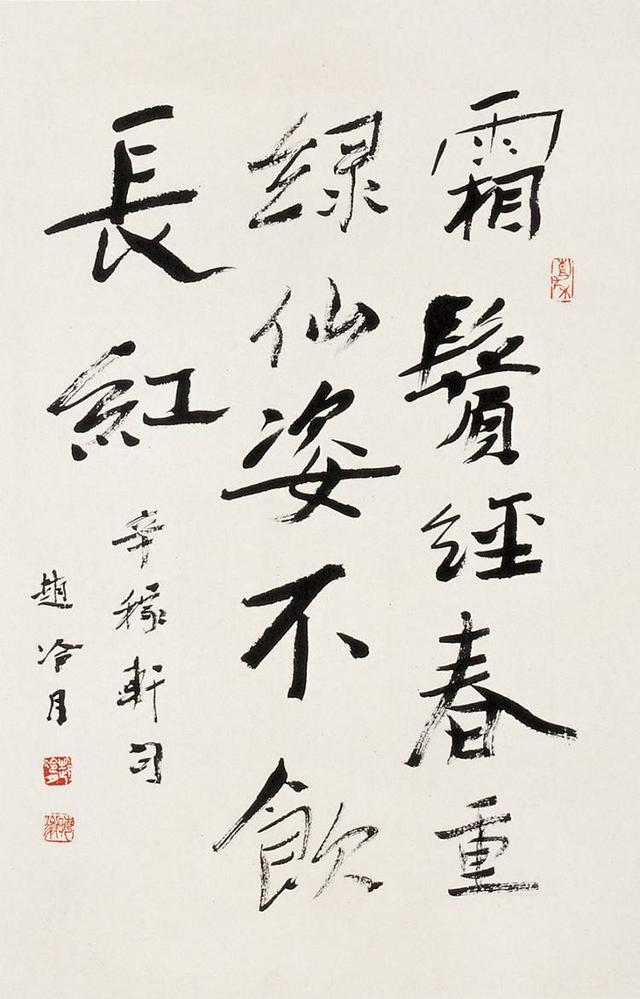 霜鬢經春重
緑仙姿不飲
長紅
辛稼軒句
趙冷月